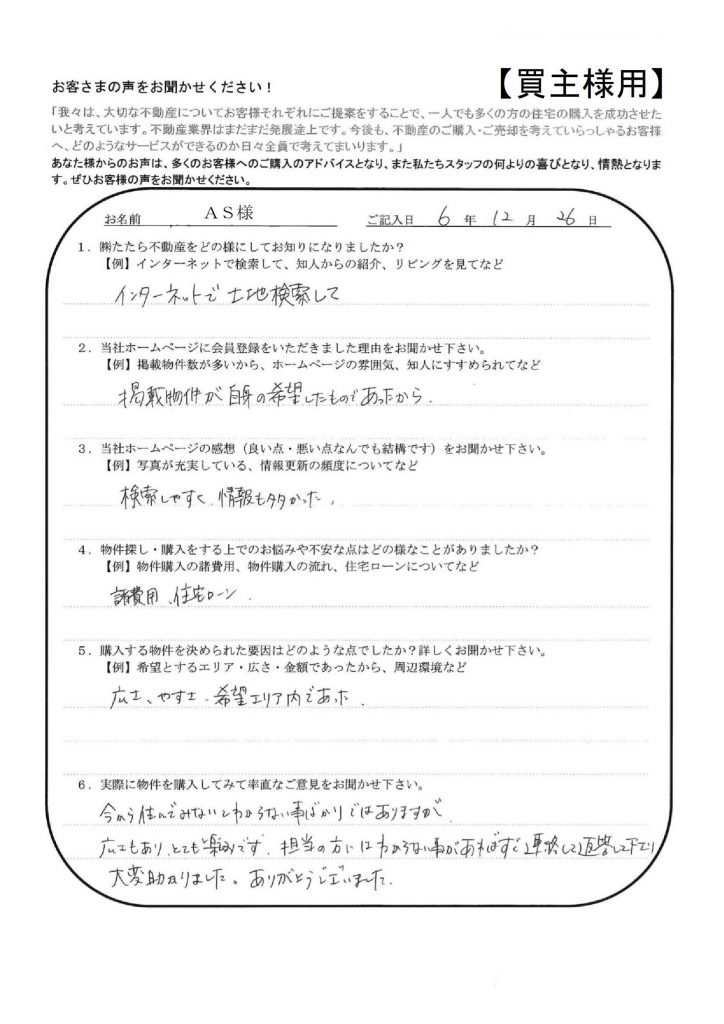 お客さまの声をお聞かせください！
【買主様用】
「我々は、大切な不動産についてお客様それぞれにご提案をすることで、一人でも多くの方の住宅の購入を成功させた
いと考えています。不動産業界はまだまだ発展途上です。今後も、不動産のご購入・ご売却を考えていらっしゃるお客様
へ、どのようなサービスができるのか日々全員で考えてまいります。」
あなた様からのお声は、多くのお客様へのご購入のアドバイスとなり、また私たちスタッフの何よりの喜びとなり、情熱となりま
す。ぜひお客様の声をお聞かせください。
お名前 AS様 ご記入日 6 年 12 月 26 日
1．㈱たたら不動産をどの様にしてお知りになりましたか？
【例】インターネットで検索して、知人からの紹介、リビングを見てなど
インターネットで土地検索して
2．当社ホームページに会員登録をいただきました理由をお聞かせ下さい。
【例】掲載物件数が多いから、ホームページの雰囲気、知人にすすめられてなど
掲載物件が自身の希望したものであったから．
3．当社ホームページの感想（良い点・悪い点なんでも結構です）をお聞かせ下さい。
【例】写真が充実している、情報更新の頻度についてなど
検索しやすく、情報も多かった．
4．物件探し・購入をする上でのお悩みや不安な点はどの様なことがありましたか？
【例】物件購入の諸費用、物件購入の流れ、住宅ローンについてなど
諸費用、住宅ローン．
5．購入する物件を決められた要因はどのような点でしたか？詳しくお聞かせ下さい。
【例】希望とするエリア・広さ・金額であったから、周辺環境など
広さ、やすさ．希望エリア内であった．
6．実際に物件を購入してみて率直なご意見をお聞かせ下さい。
今から住んでみないとわからない事ばかりではありますが、
広さもあり、とても楽みです．担当の方にはわからない事があればすぐ連絡して返答して下さり
大変助かりました。ありがとうございました．